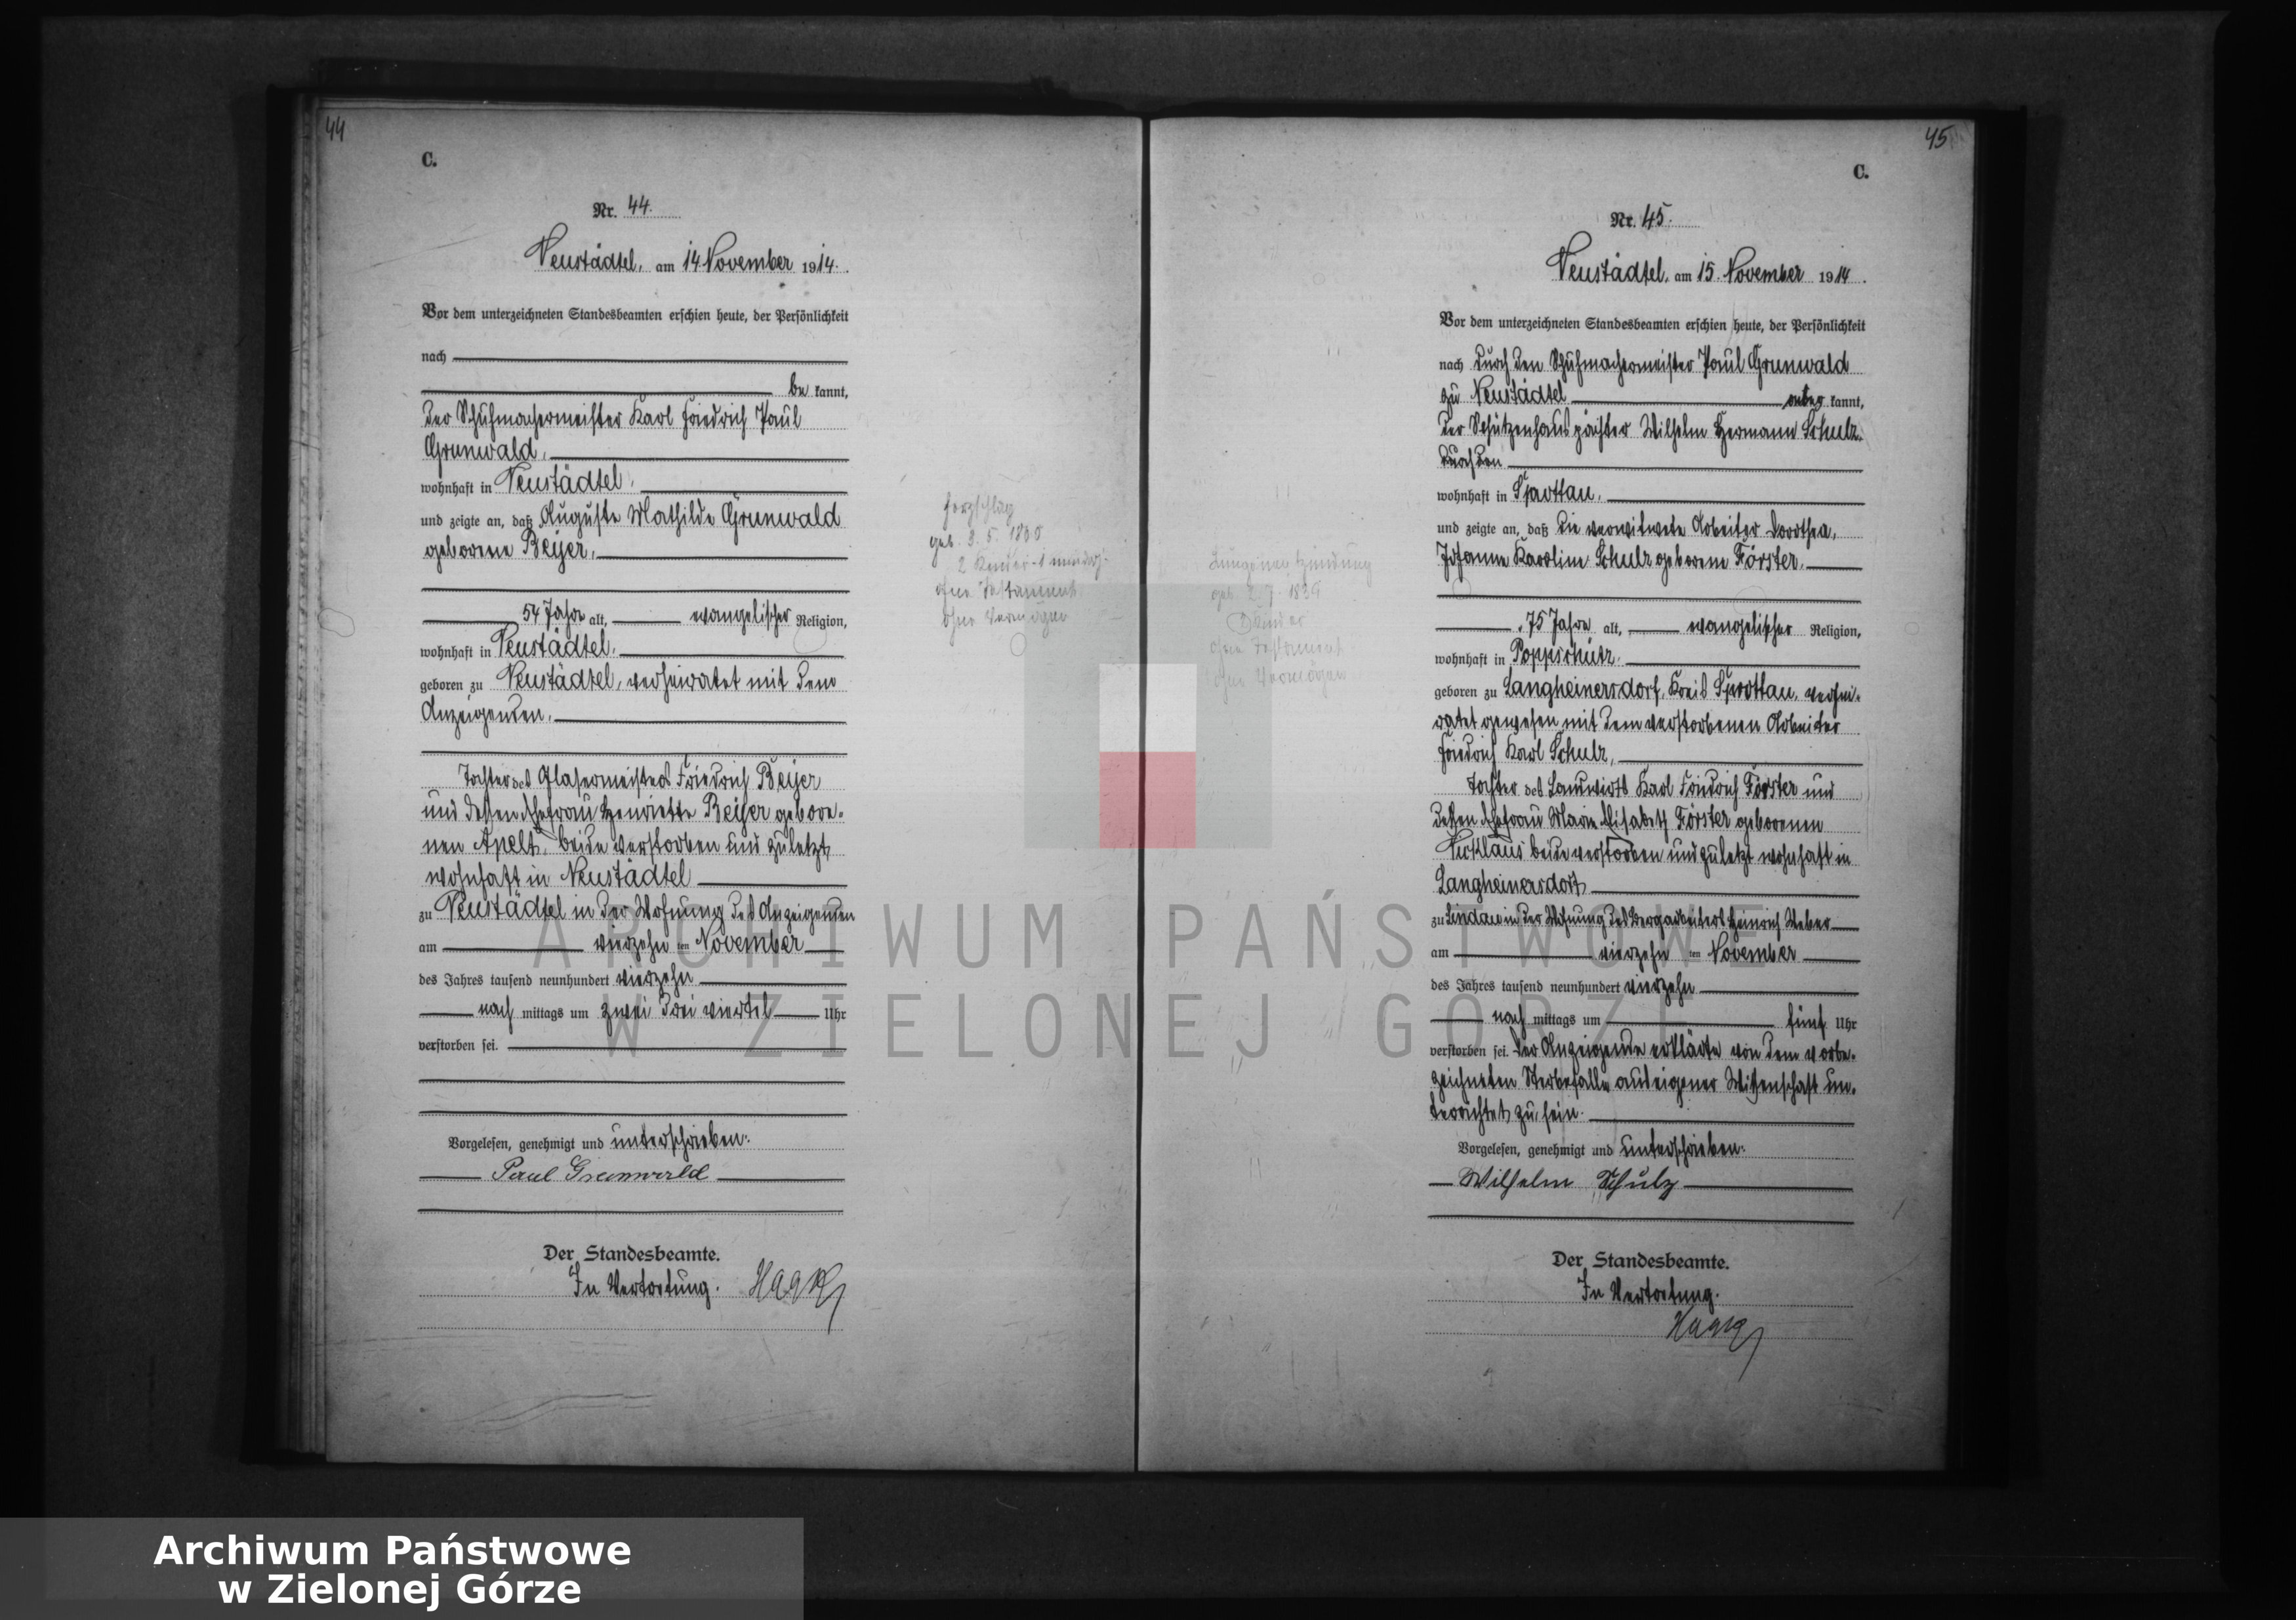 44
C.
Nr. 44.
Neustädtel, am 14 November 1914.
Vor dem unterzeichneten Standesbeamten erschien heute, der Persönlichkeit
nach
be kannt,
der Schuhmachermeister Karl Friedrich Paul
Grunwald,
wohnhaft in Neustädtel,
und zeigte an, daß Auguste Mathilde Grunwald
geborene Beijer,
54 Jahre alt, evangelischer Religion,
wohnhaft in Neustädtel,
geboren zu Neustädtel, verheiratet mit dem
Anzeigenden,
Tochter des Glasermeisters Friedrich Beijer
und dessen Ehefrau Henriette Beijer gebore-
nen Apelt, beide verstorben und zuletzt
wohnhaft in Neustädtel
zu Neustädtel in der Wohnung des Anzeigenden
am vierzehn ten November
des Jahres tausend neunhundert vierzehn
nach mittags um zwei drei viertel Uhr
verstorben sei.
Vorgelesen, genehmigt und unterschrieben:
Paul Grunwald
Der Standesbeamte.
In Vertretung.
Herzschlag
geb. 3. 5. 1860
2 Kinder - 1 minderj.
ohne Testament
ohne Vermögen
45
C.
Nr. 45.
Neustädtel, am 15. November 1914.
Vor dem unterzeichneten Standesbeamten erschien heute, der Persönlichkeit
nach durch den Schuhmachermeister Paul Grunwald
zu Neustädtel kannt,
der Schützenhauspächter Wilhelm Hermann Schulz,
durch den
wohnhaft in Sprottau,
und zeigte an, daß die verwitwete Arbeiter Dorothea,
Johanne Karoline Schulz geborene Förster,
75 Jahre alt, evangelischer Religion,
wohnhaft in Poppschütz,
geboren zu Langheinersdorf, Kreis Sprottau, verhei-
ratet gewesen mit dem verstorbenen Arbeiter
Friedrich Karl Schulz,
Tochter des Landwirts Karl Friedrich Förster und
dessen Ehefrau Marie Elisabeth Förster geborenen
Nicklaus beide verstorben und zuletzt wohnhaft in
Langheinersdorf
zu Lindau in der Wohnung des Bergarbeiters Heinrich Weber
am vierzehn ten November
des Jahres tausend neunhundert vierzehn
nach mittags um fünf Uhr
verstorben sei. Der Anzeigende erklärte von dem vorbe-
zeichneten Sterbefalle aus eigener Wissenschaft un-
terrichtet zu sein.
Vorgelesen, genehmigt und unterschrieben:
Wilhelm Schulz
Der Standesbeamte.
In Vertretung.
Lungenentzündung
ohne Testament
ohne Vermögen
ARCHIWUM PAŃSTWOWE
W ZIELONEJ GÓRZE
Archiwum Państwowe
w Zielonej Górze